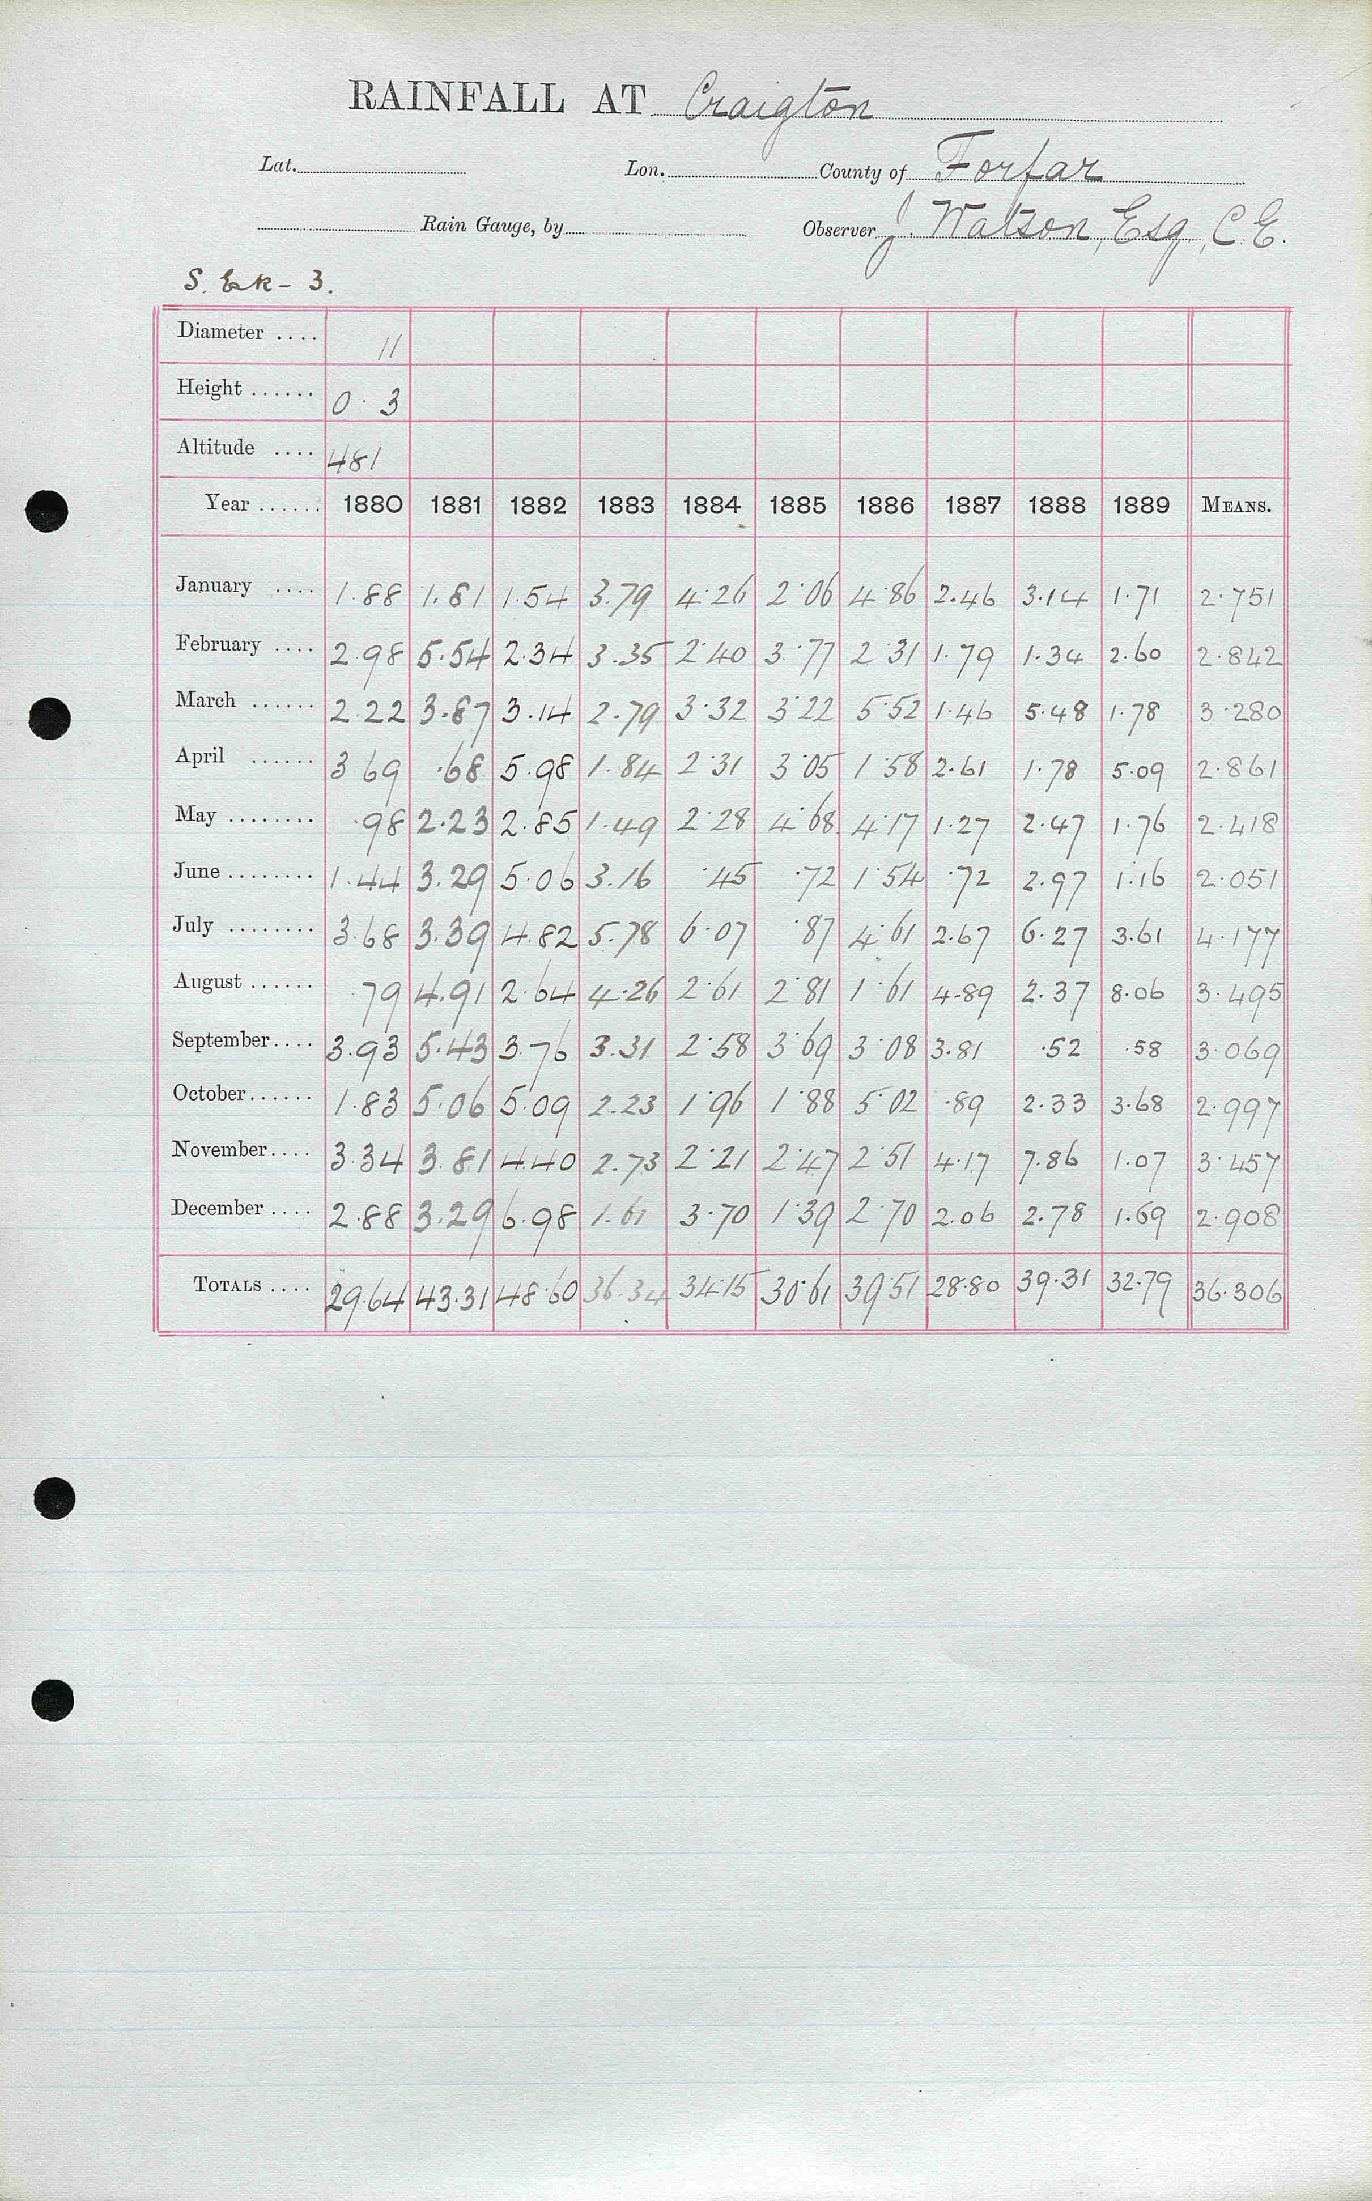 RAINFALL AT Craigton
Lat. Lon. County of Forfar
Rain Gauge, by Observer J. Watson, Esq, C.E.
S. Esk - 3.
Diameter .... 11
Height ...... 0 3
Altitude .... 481
Year ...... 1880 1881 1882 1883 1884 1885 1886 1887 1888 1889 MEANS.
January .... 1.88 1.81 1.54 3.79 4.26 2.06 4.86 2.46 3.14 1.71 2.751
February .... 2.98 5.54 2.34 3.35 2.40 3.77 2.31 1.79 1.34 2.60 2.842
March ...... 2.22 3.87 3.14 2.79 3.32 3.22 5.52 1.46 5.48 1.78 3.280
April ...... 3 69 .68 5.98 1.84 2.31 3.05 1.58 2.61 1.78 5.09 2.861
May ........ .98 2.23 2.85 1.49 2.28 4.68 4.17 1.27 2.47 1.76 2.418
June ........ 1.44 3.29 5.06 3.16 .45 .72 1.54 .72 2.97 1.16 2.051
July ........ 3.68 3.39 4.82 5.78 6.07 .87 4.61 2.67 6.27 3.61 4.177
August ...... 79 4.91 2.64 4.26 2.61 2.81 1.61 4.89 2.37 8.06 3.495
September.... 3.93 5.43 3.76 3.31 2.58 3.69 3.08 3.81 .52 .58 3.069
October...... 1.83 5.06 5.09 2.23 1.96 1.88 5.02 .89 2.33 3.68 2.997
November.... 3.34 3.81 4.40 2.73 2.21 2.47 2.51 4.17 7.86 1.07 3.457
December .... 2.88 3.29 6.98 1.61 3.70 1.39 2.70 2.06 2.78 1.69 2.908
TOTALS .... 29.64 43.31 48.60 36.34 34.15 30.61 39.51 28.80 39.31 32.79 36.306